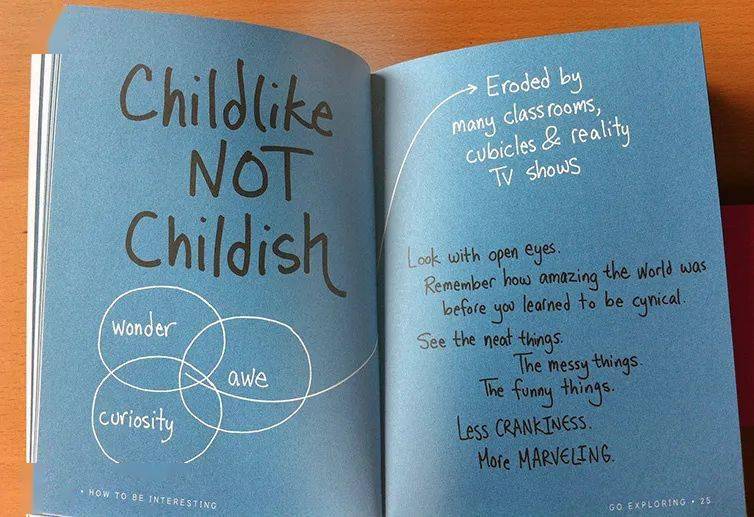 Childlike
NOT
Childish
wonder
awe
curiosity
• HOW TO BE INTERESTING
Eroded by
many classrooms,
cubicles & reality
TV shows
Look with open eyes.
Remember how amazing the world was
before you learned to be cynical.
See the neat things.
The messy things.
The funny things.
Less CRANKINESS.
More MARVELING.
GO EXPLORING • 25